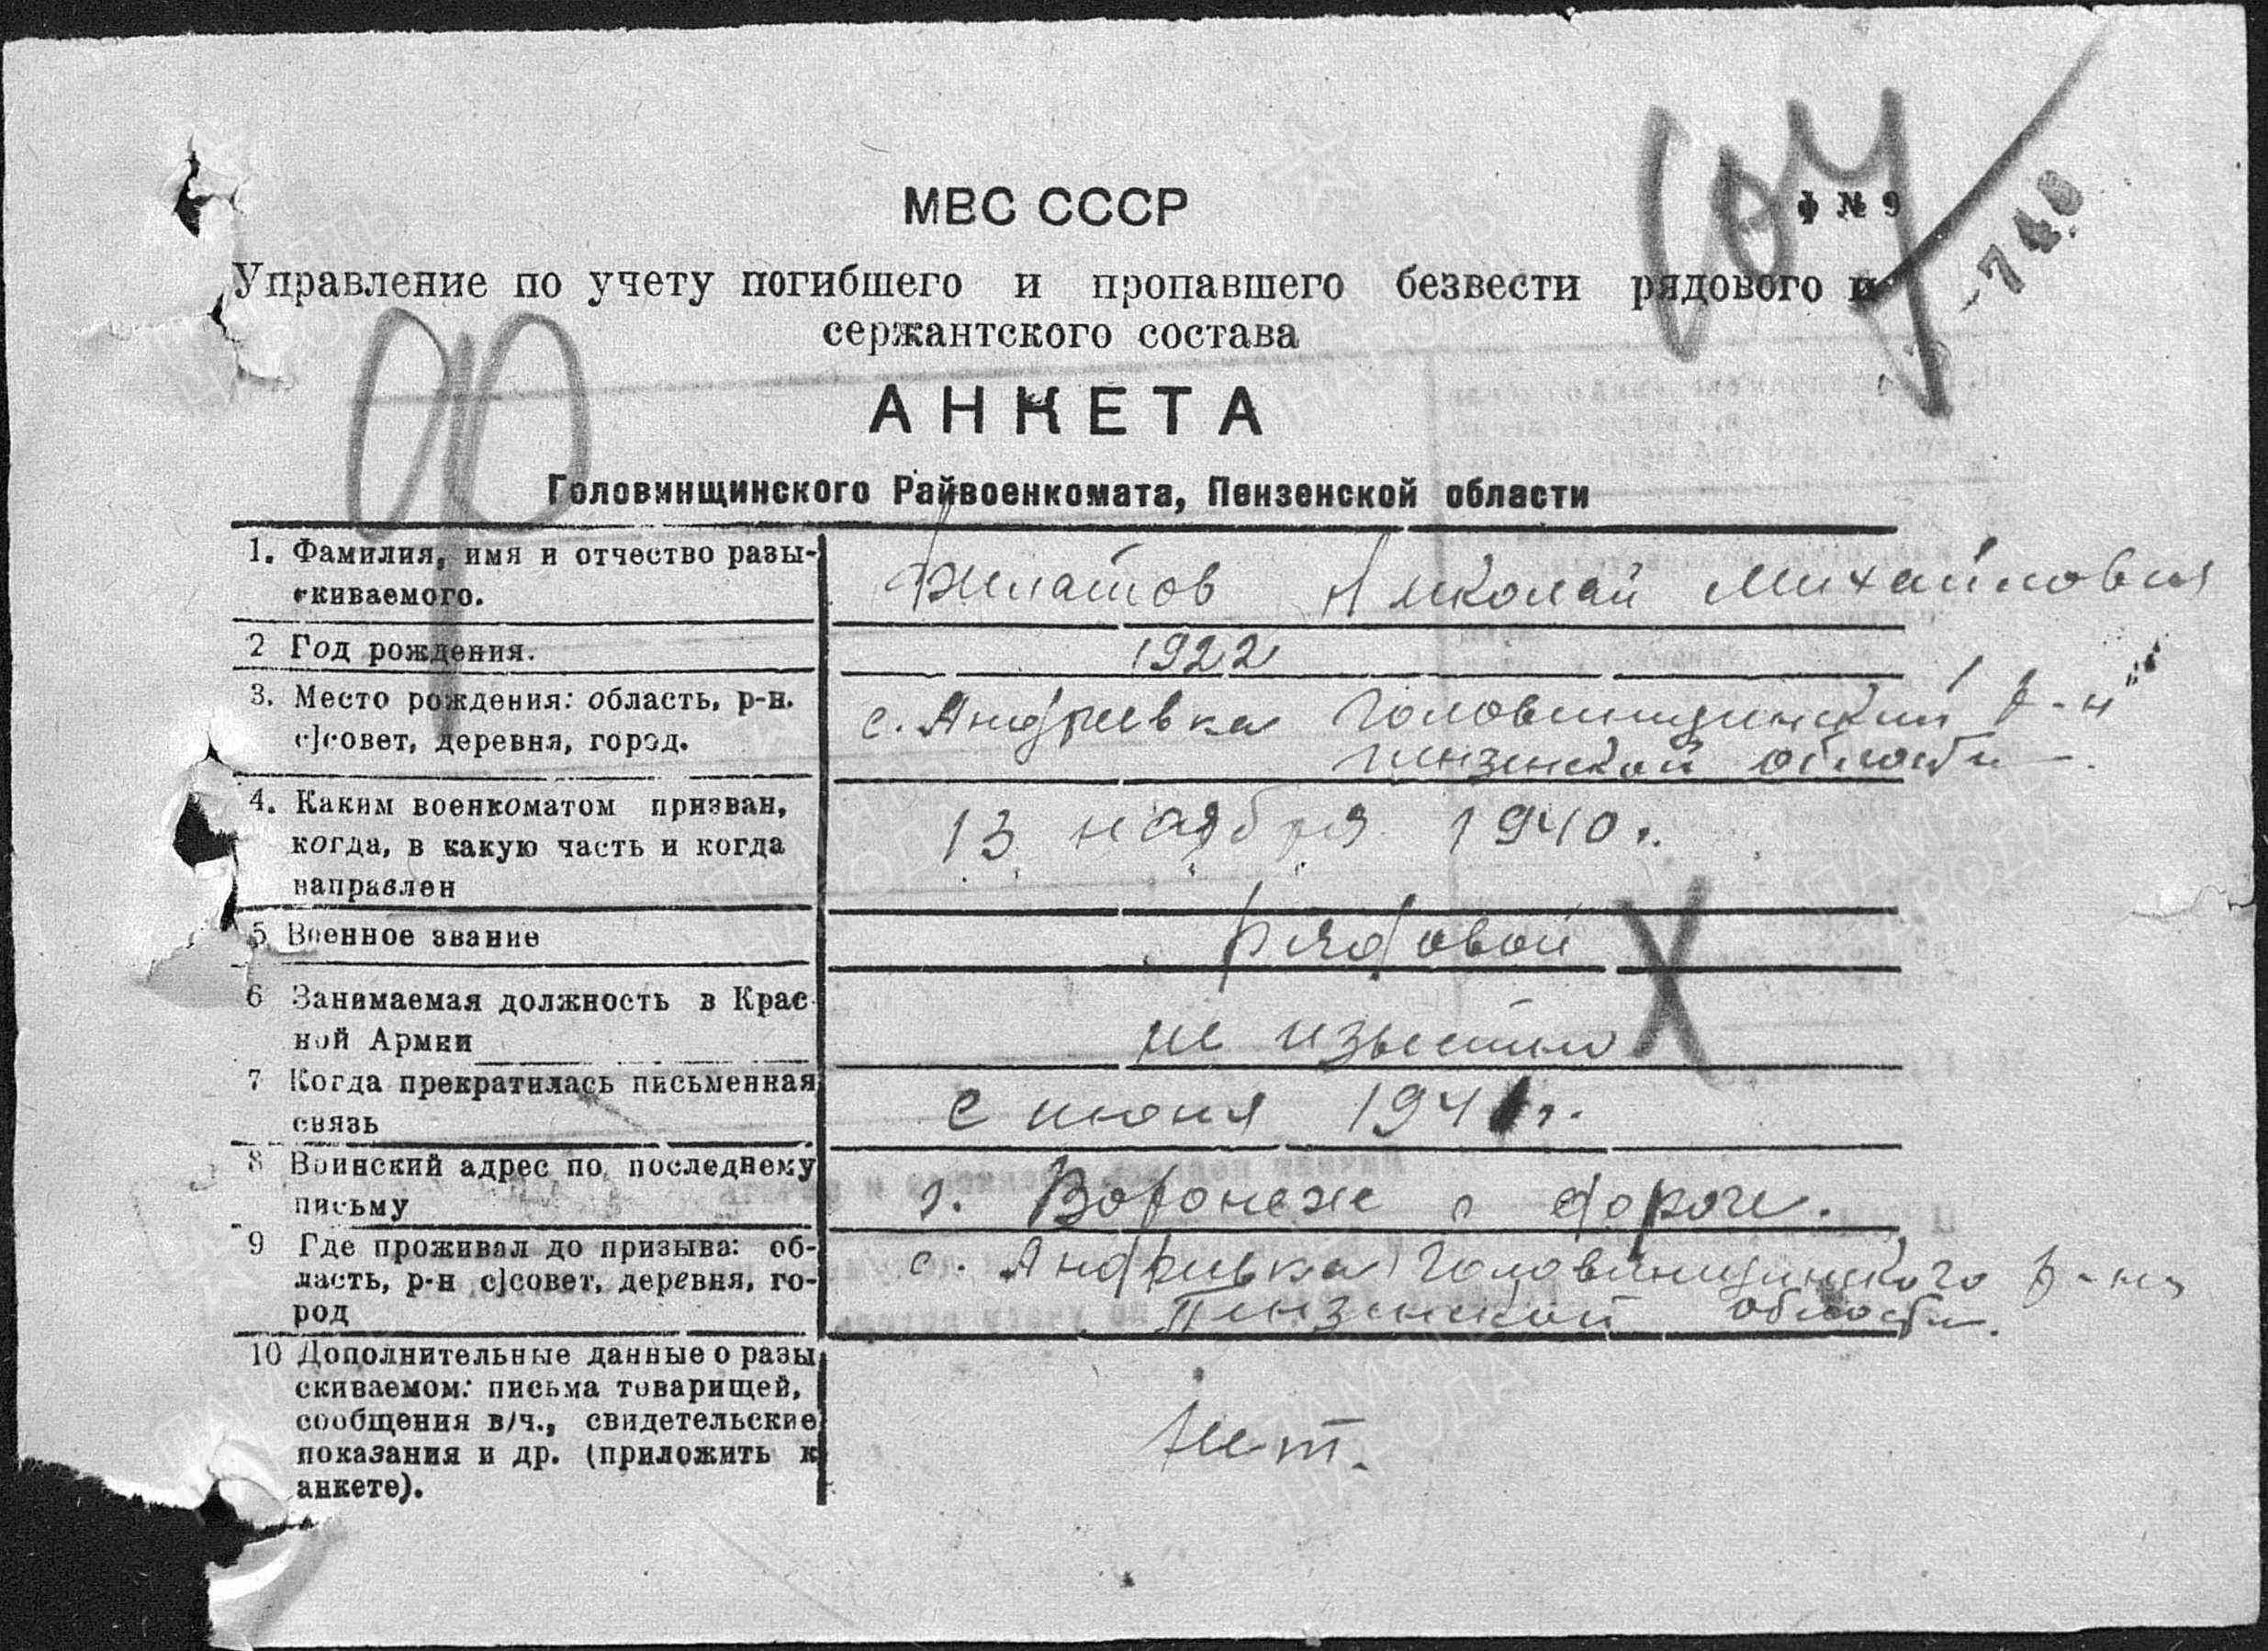 МВС СССР
ф № 9
Управление по учету погибшего и пропавшего безвести рядового и
сержантского состава
АНКЕТА
Головинщинского Райвоенкомата, Пензенской области
1. Фамилия, имя и отчество разы-
скиваемого.
Филатов Николай Михайлович
2 Год рождения.
1922
3. Место рождения: область, р-н.
с|совет, деревня, город.
с. Андреевка Головинщинский р-н
Пензенской области
4. Каким военкоматом призван,
когда, в какую часть и когда
направлен
13 ноября 1940 г.
5 Военное звание
рядовой
6 Занимаемая должность в Крас
ной Армии
не известно
7 Когда прекратилась письменная
связь
с июня 1941 г.
8 Воинский адрес по последнему
письму
г. Воронеже с дороги.
9 Где проживал до призыва: об-
ласть, р-н с|совет, деревня, го-
род
с. Андреевка Головинщинского р-на
Пензенской области.
10 Дополнительные данные о разы
скиваемом: письма товарищей,
сообщения в/ч., свидетельские
показания и др. (приложить к
анкете).
Нет.